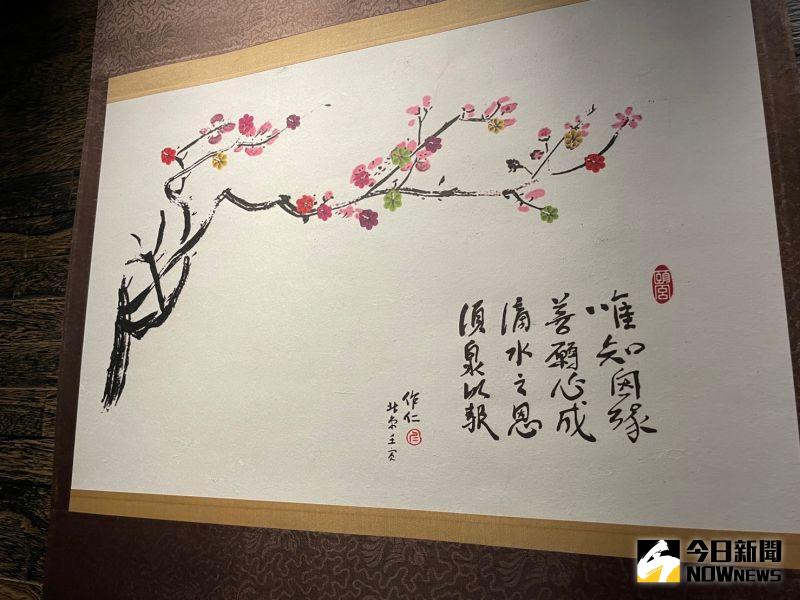 唯知因緣
善願心成
滴水之恩
須泉以報
作仁
北京壬寅
頤宮
今日新聞
NOWNEWS